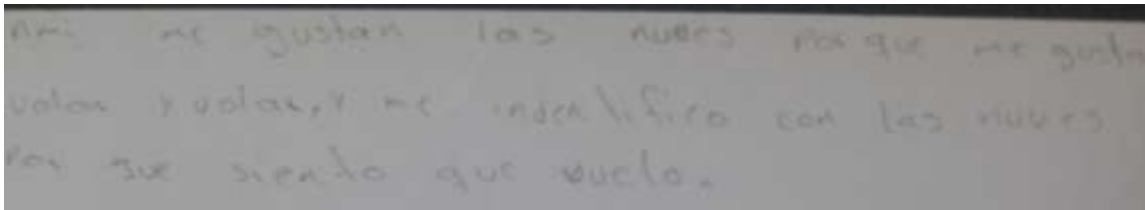 Ami me gustan las nuves Por que me gusta
volar y volar, y me indentifico con las nuves
Por que siento que vuelo.